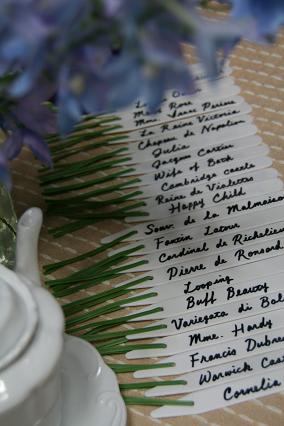 Mme. Rose
Mme. Isaac Periere
La Reine Victoria
Chapeau de Napoleon
Julia
Jacques Cartier
Wife of Bath
Cambridge Castle
Reine de Violette
Happy Child
Souv. de la Malmaison
Fantin Latour
Cardinal de Richelieu
Pierre de Ronsard
Looping
Buff Beauty
Variegata di Bol
Mme. Hardy
Francis Dubreu
Warwick Cast
Cornelia